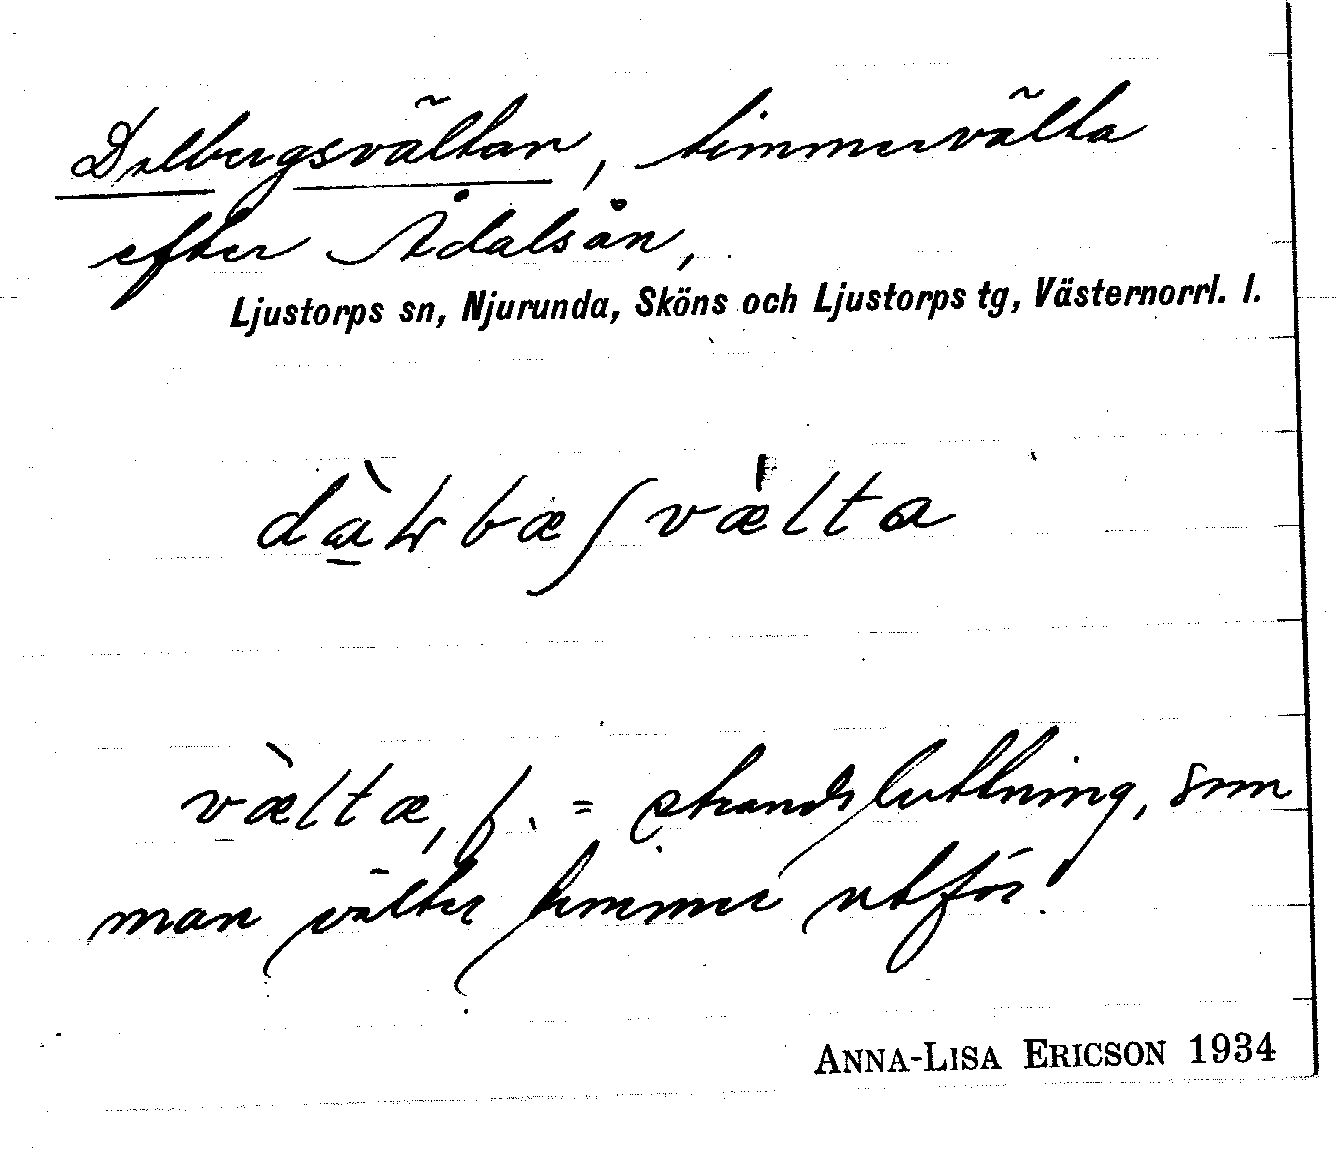 Dalbergsvältan, timmervälta
efter Ådalsån,
Ljustorps sn, Njurunda, Sköns och Ljustorps tg, Västernorrl. l.
væ̀ltæ, f. = strandsluttning, som
man välter timmer utför.
ANNA-LISA ERICSON 1934